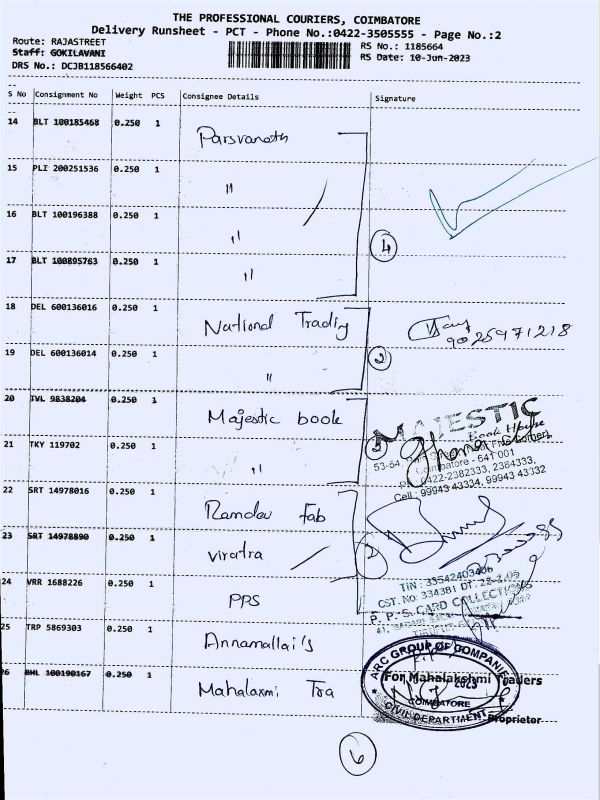 THE PROFESSIONAL COURIERS, COIMBATORE
Delivery Runsheet - PCT - Phone No.:0422-3505555 - Page No.:2
Route: RAJASTREET
Staff: GOKILAVANI
DRS No.: DCJB118566402
RS No.: 1185664
RS Date: 10-Jun-2023
S No Consignment No Weight PCS Consignee Details Signature
14 BLT 100185468 0.250 1 Parsvanath
15 PLI 200251536 0.250 1 "
16 BLT 100196388 0.250 1 "
4
17 BLT 100895763 0.250 1 "
18 DEL 600136016 0.250 1 National Tradig
9025971218
19 DEL 600136014 0.250 1 "
2
20 TVL 9838204 0.250 1 Majestic book
MAJESTIC
Book House
21 TKY 119702 0.250 1 "
Coimbatore - 641 001
0422-2382333, 2384333,
Cell: 99943 43334, 99943 43332
22 SRT 14978016 0.250 1 Ramdev Fab
23 SRT 14978890 0.250 1 viratra
2
TIN : 33542403406
CST. No: 334381 DT:
24 VRR 1688226 0.250 1 PPS
P. P. S. CARD COLLECTIONS
25 TRP 5869303 0.250 1 Annamallai's
ARC GROUP OF COMPANIES
26 BHL 100190167 0.250 1 Mahalaxmi Tra
For Mahalakshmi Traders
2023
COIMBATORE
CIVIL DEPARTMENT
Proprietor
6